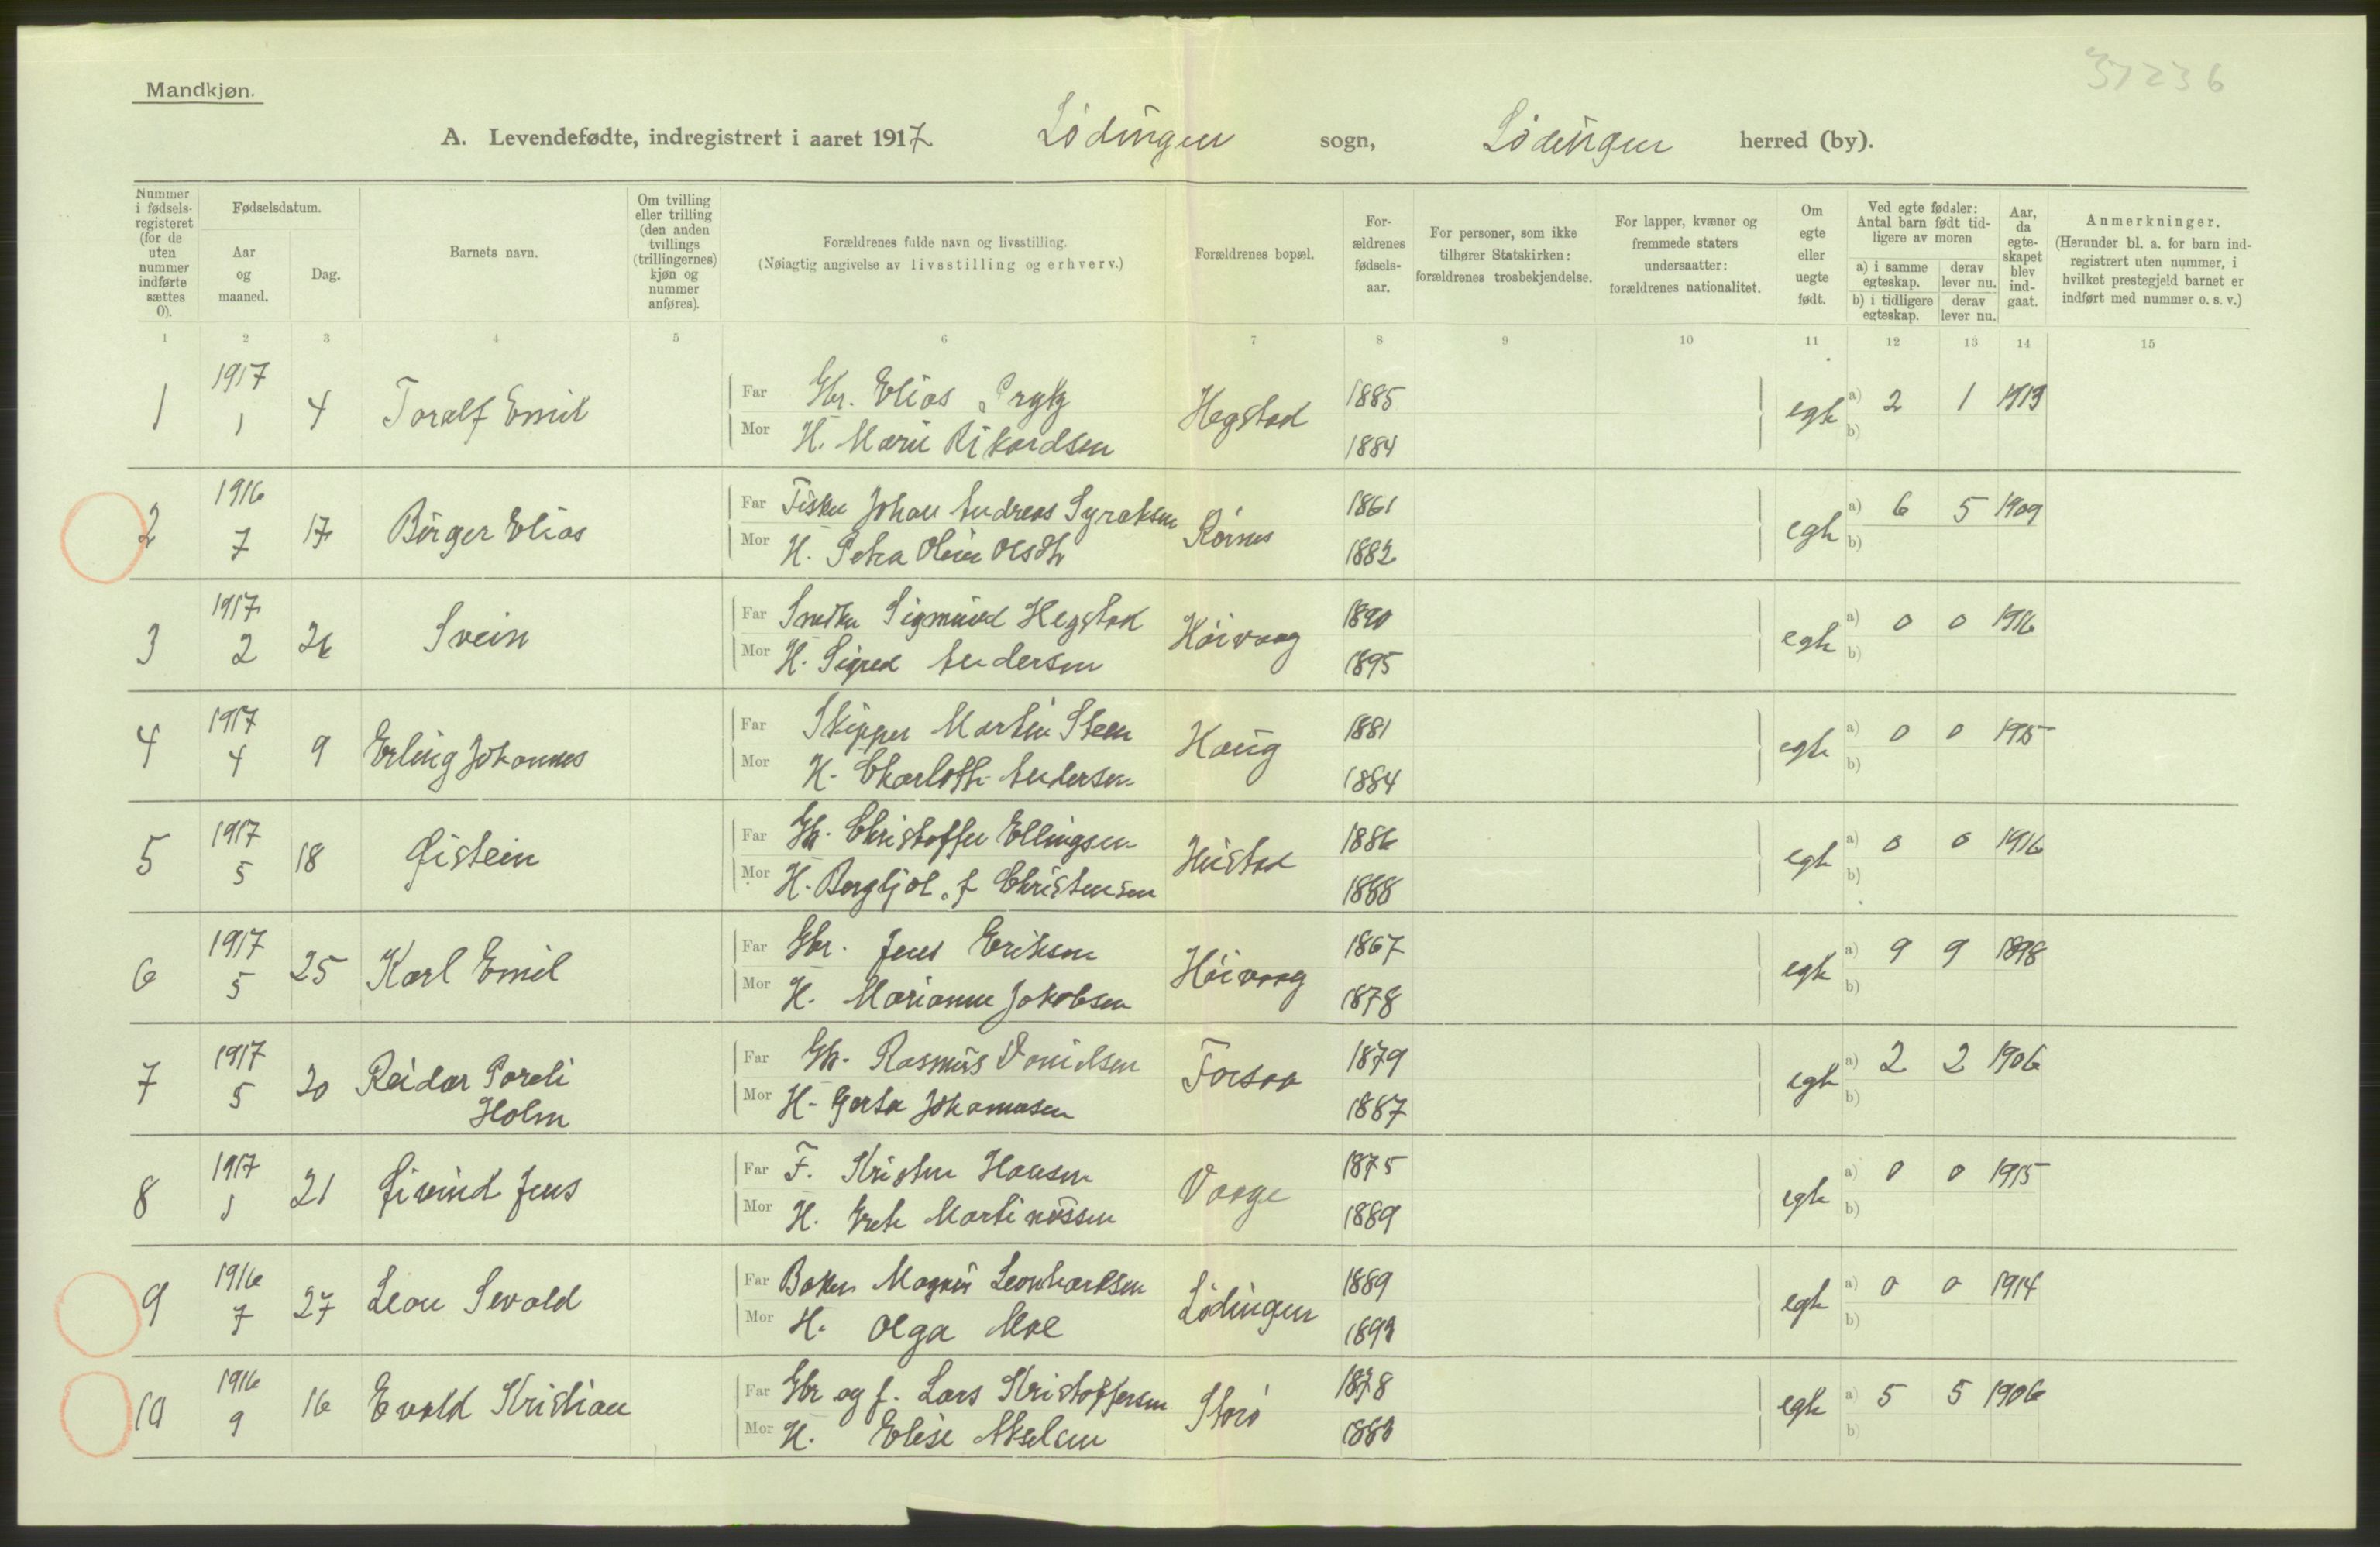 37236
Mandkjøn.
A. Levendefødte, indregistrert i aaret 1917. Lødingen sogn, Lødingen herred (by).
Nummer i fødsels-registeret (for de uten nummer indførte sættes 0).
Fødselsdatum.
Aar og maaned.
Dag.
Barnets navn.
Om tvilling eller trilling (den anden tvillings (trillingernes) kjøn og nummer anføres).
Forældrenes fulde navn og livsstilling.
(Nøiagtig angivelse av livsstilling og erhverv.)
Forældrenes bopæl.
For-ældrenes fødsels-aar.
For personer, som ikke tilhører Statskirken: forældrenes trosbekjendelse.
For lapper, kvæner og fremmede staters undersaatter: forældrenes nationalitet.
Om egte eller uegte født.
Ved egte fødsler: Antal barn født tid-ligere av moren
a) i samme egteskap.
derav lever nu.
b) i tidligere egteskap.
derav lever nu.
Aar, da egte-skapet blev ind-gaat.
Anmerkninger.
(Herunder bl. a. for barn ind-registrert uten nummer, i hvilket prestegjeld barnet er indført med nummer o. s. v.)
1 2 3 4 5 6 7 8 9 10 11 12 13 14 15
1 1917 1 4 Toralf Emil
Far Gbr. Elias 1885
Mor H. Marie Rikardsen 1884
Hegstad egte a) 2 1 1913 b)
2 1916 7 17 Birger Elias
Far Fisker Johan Andreas Syraksen 1861
Mor H. Petra Oline Olsdtr 1882
Rörnes egte a) 6 5 1909 b)
3 1917 2 26 Svein
Far Snekker Sigmund Hegstad 1890
Mor H. Sigrid Andersen 1895
Höivaag egte a) 0 0 1916 b)
4 1917 4 9 Erling Johannes
Far Skipper Martin Steen 1881
Mor H. Charlotte Andersen 1884
Haug egte a) 0 0 1915 b)
5 1917 5 18 Øistein
Far Gbr. Christoffer Ellingsen 1886
Mor H. Bergljot f Christensen 1888
Hustad egte a) 0 0 1916 b)
6 1917 5 25 Karl Emil
Far Gbr. Jens Eriksen 1867
Mor H. Marianne Jakobsen 1878
Höivaag egte a) 9 9 1898 b)
7 1917 5 20 Reidar Pareli Holm
Far Gbr. Rasmus Danielsen 1879
Mor H. Gerta Johannesen 1887
Forsaa egte a) 2 2 1906 b)
8 1917 1 21 Øivind Jens
Far F. Kristen Hansen 1875
Mor H. Grete Martinussen 1889
Vaage egte a) 0 0 1915 b)
9 1916 7 27 Leon Sevald
Far Baker Magnus Leonhardsen 1889
Mor H. Olga Moe 1893
Lödingen egte a) 0 0 1914 b)
10 1916 9 16 Evald Kristian
Far Gbr og f. Lars Kristoffersen 1878
Mor H. Elise Akselsen 1883
Storö egte a) 5 5 1906 b)